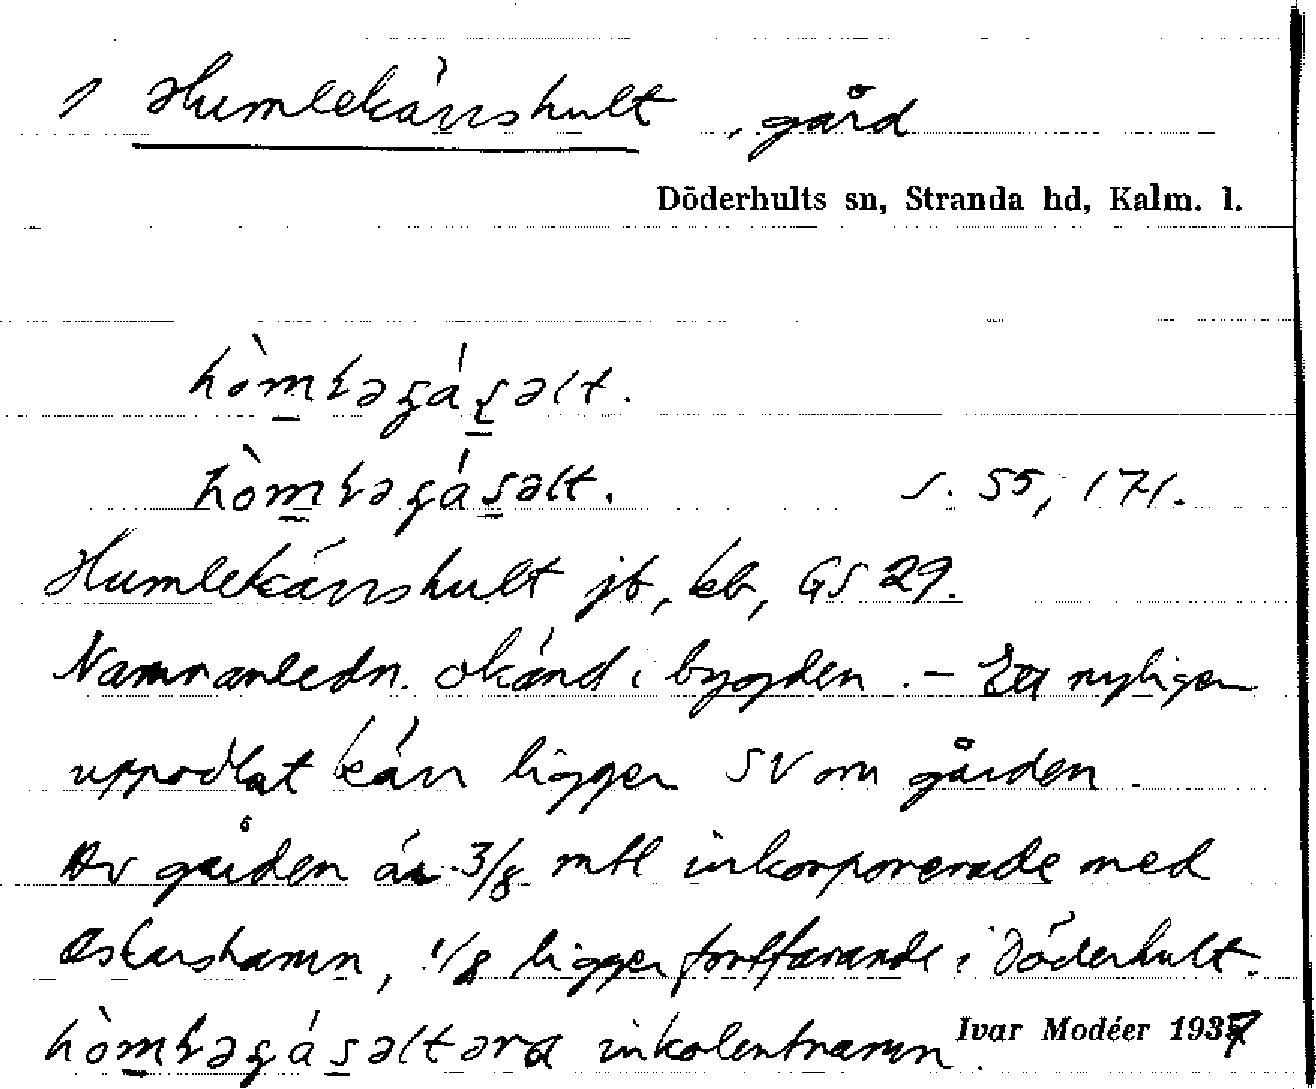 1 Humlekärrshult, gård
Döderhults sn, Stranda hd, Kalm. l.
s. 55, 171.
Humlekärrshult jb, kb, GS 29.
Namnanledn. okänd i bygden. – Ett nyligen
uppodlat kärr ligger SV om gården.
Av gården är 3/8 mtl inkorporerade med
Oskarshamn, 1/8 ligger fortfarande i Döderhult.
inkolentnamn
Ivar Modéer 1937